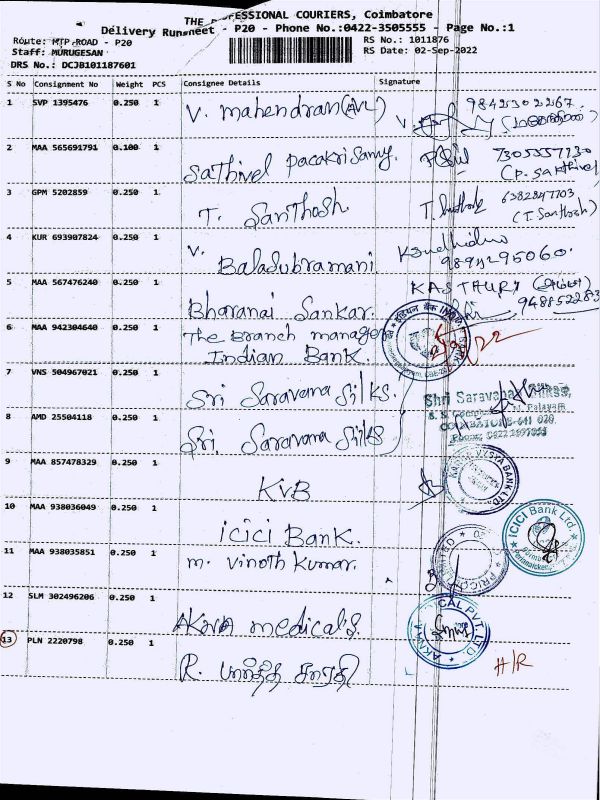 THE PROFESSIONAL COURIERS, Coimbatore
Delivery Runsheet - P20 - Phone No.:0422-3505555 - Page No.:1
Route: MTP ROAD - P20
Staff: MURUGESAN
DRS No.: DCJB101187601
RS No.: 1011876
RS Date: 02-Sep-2022
S No Consignment No Weight PCS Consignee Details Signature
1 SVP 1395476 0.250 1 V. mahendran 9842302267
2 MAA 565691791 0.100 1 Sathivel Pacakrisamy. 7305557730
(P. Sakthivel
3 GPM 5202859 0.250 1 T. Santhosh. 6382847703
(T. Santhosh)
4 KUR 693907824 0.250 1 V. Balasubramani 9894295060.
5 MAA 567476240 0.250 1 Bharanai Sankar. KASTHURI (அம்மா)
948852283
6 MAA 942304640 0.250 1 The Branch manager
Indian Bank.
7 VNS 504967021 0.250 1 Sri Saravana Silks.
Shri Saravana
COIMBATORE-641 020
8 AMD 25504118 0.250 1 Sri. Saravana Silks
9 MAA 857478329 0.250 1 KVB
VYSYA BANK LTD.
10 MAA 938036049 0.250 1 icici Bank.
ICICI Bank Ltd.
11 MAA 938035851 0.250 1 m. Vinoth kumar.
PRICOL LIMITED
12 SLM 302496206 0.250 1 Akna medical's.
CAL PVT. LTD
13 PLN 2220798 0.250 1 R. பார்த்த சாரதி
H/R